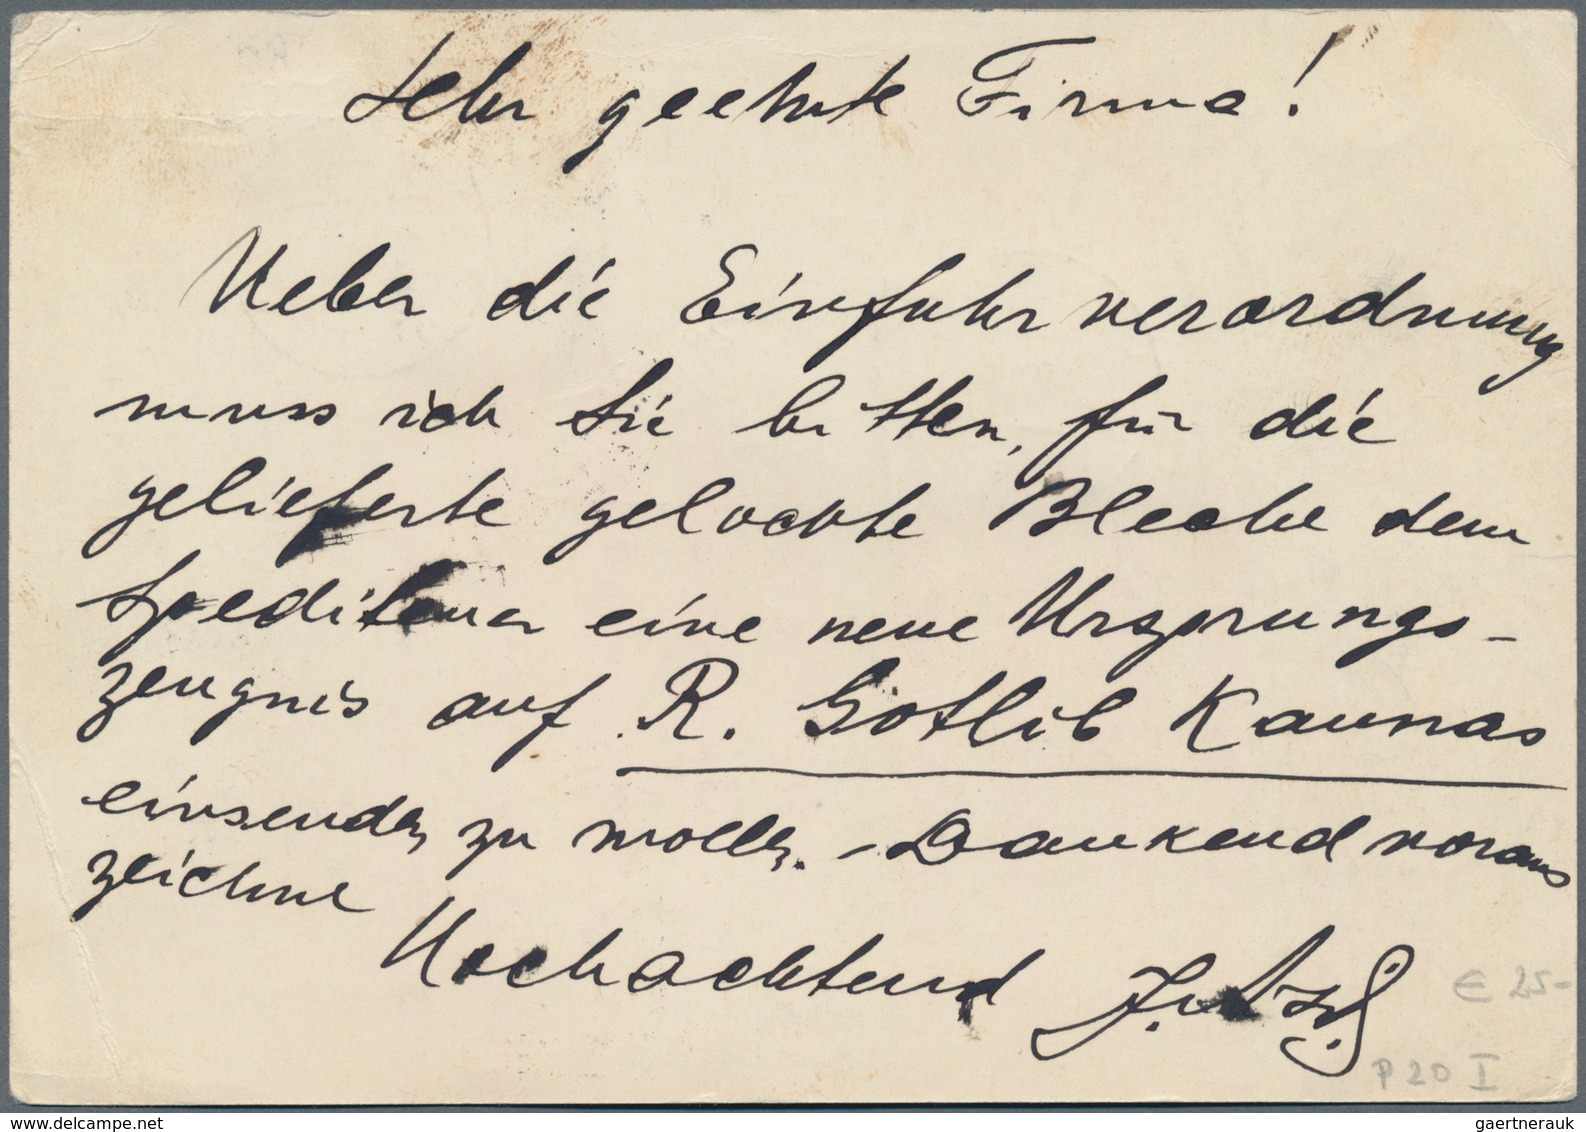 Sehr geehrte Firma!
Ueber die Einfuhrverordnung
muss ich Sie bitten, für die
gelieferte gelochte Bleche dem
Spediteuer eine neue Ursprungs-
zeugnis auf R. Gotlib Kaunas
einsenden zu wollen. – Dankend voraus
zeichne
Hochachtend
€ 25-
P 20 I
www.delcampe.net
gaertnerauk